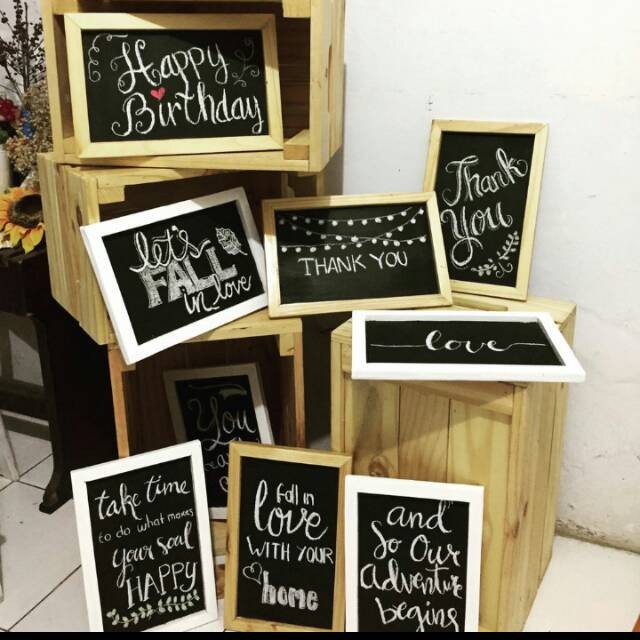 Happy
Birthday
Thank
You
let's
FALL
in love
THANK YOU
love
You
take time
to do what makes
your soul
HAPPY
fall in
love
WITH YOUR
home
and
So Our
adventure
begins